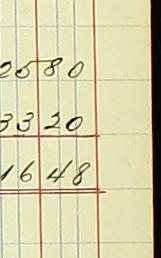 2580
3320
1648